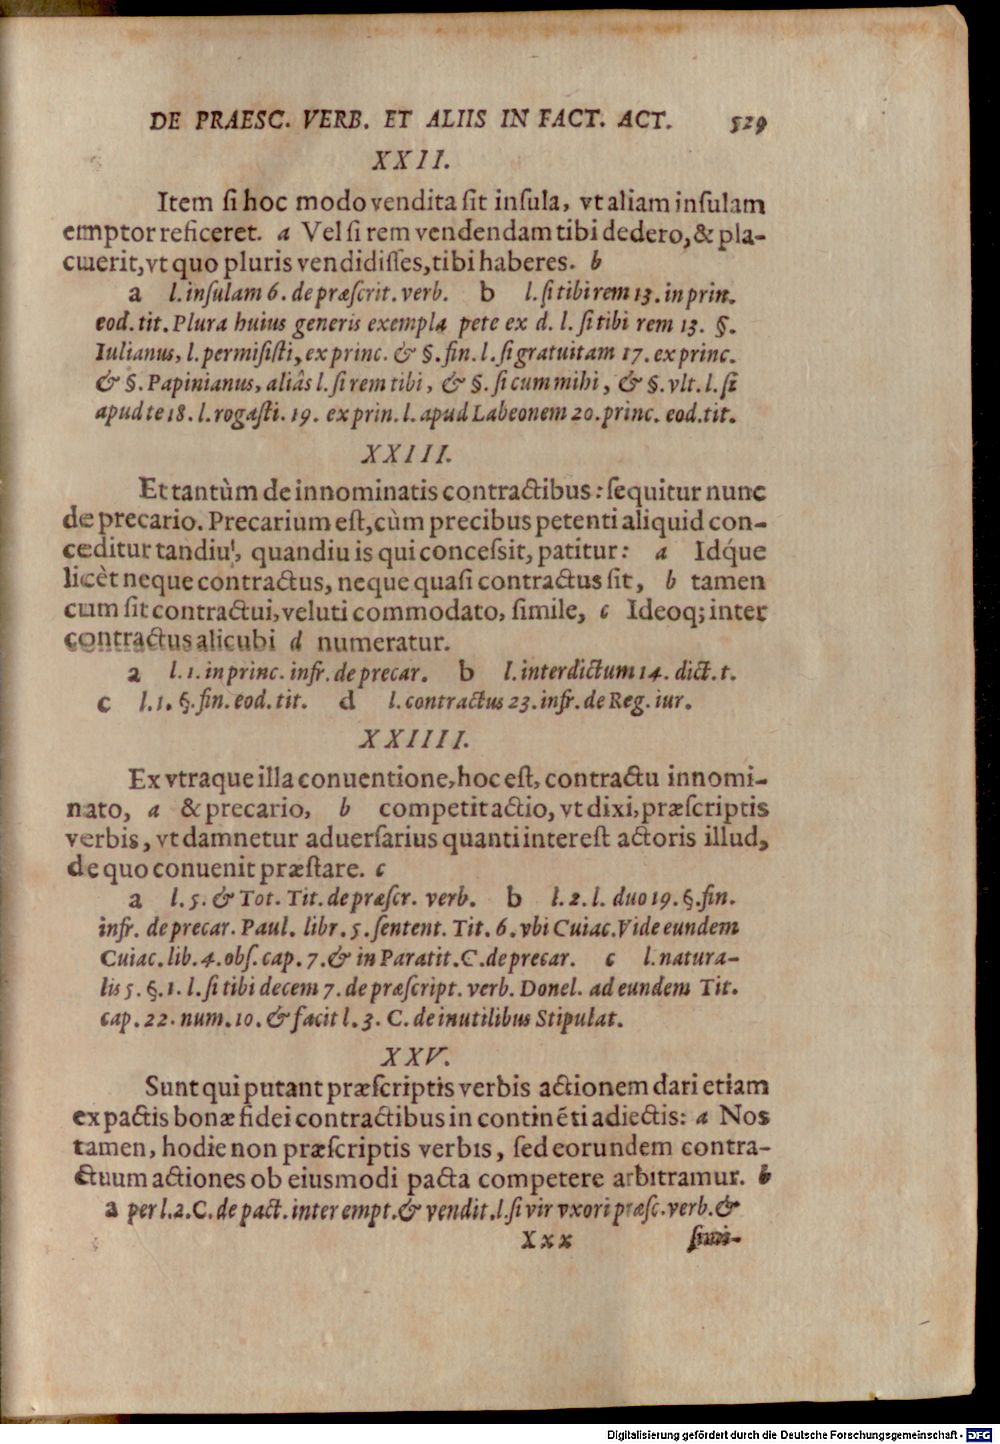 DE PRAESC. VERB. ET ALIIS IN FACT. ACT. 529
XXII.
Item ſi hoc modo vendita ſit inſula, vt aliam inſulam
emptor reficeret. a Vel ſi rem vendendam tibi dedero, & pla-
cuerit, vt quo pluris vendidiſſes, tibi haberes. b
a l. inſulam 6. de præſcrit. verb. b l. ſi tibi rem 13. in prin.
eod. tit. Plura huius generis exempla pete ex d. l. ſi tibi rem 13. §.
Iulianus, l. permiſiſti, ex princ. & §. fin. l. ſi gratuitam 17. ex princ.
& §. Papinianus, aliâs l. ſi rem tibi, & §. ſi cum mihi, & §. vlt. l. ſi
apud te 18. l. rogaſti. 19. ex prin. l. apud Labeonem 20. princ. eod. tit.
XXIII.
Et tantùm de innominatis contractibus: ſequitur nunc
de precario. Precarium eſt, cùm precibus petenti aliquid con-
ceditur tandiu, quandiu is qui conceſsit, patitur: a Idq́ue
licèt neque contractus, neque quaſi contractus ſit, b tamen
cum ſit contractui, veluti commodato, ſimile, c Ideoq; inter
contractus alicubi d numeratur.
a l. 1. in princ. infr. de precar. b l. interdictum 14. dict. t.
c l. 1. §. fin. eod. tit. d l. contractus 23. infr. de Reg. iur.
XXIIII.
Ex vtraque illa conuentione, hoc eſt, contractu innomi-
nato, a & precario, b competit actio, vt dixi, præſcriptis
verbis, vt damnetur aduerſarius quanti intereſt actoris illud,
de quo conuenit præſtare. c
a l. 5. & Tot. Tit. de præſcr. verb. b l. 2. l. duo 19. §. fin.
infr. de precar. Paul. libr. 5. ſentent. Tit. 6. vbi Cuiac. Vide eundem
Cuiac. lib. 4. obſ. cap. 7. & in Paratit. C. de precar. c l. natura-
lis 5. §. 1. l. ſi tibi decem 7. de præſcript. verb. Donel. ad eundem Tit.
cap. 22. num. 10. & facit l. 3. C. de inutilibus Stipulat.
XXV.
Sunt qui putant præſcriptis verbis actionem dari etiam
ex pactis bonæ fidei contractibus in continẽti adiectis: a Nos
tamen, hodie non præſcriptis verbis, ſed eorundem contra-
ctuum actiones ob eiusmodi pacta competere arbitramur. b
a per l. 2. C. de pact. inter empt. & vendit. l. ſi vir vxori præſc. verb. &
Xxx ſimi-
Digitalisierung gefördert durch die Deutsche Forschungsgemeinschaft - DFG